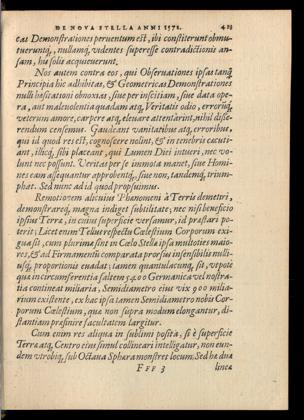 DE NOVA STELLA ANNI 1572. 423
eas Demonstrationes perventum est, ibi constiterunt obmu-
tueruntq́;, nullamq́; videntes superesse contradictionis an-
sam, his solis acquieverunt.
Nos autem contra eos, qui Observationes ipsas tanq́
Principia hîc adhibitas, & Geometricas Demonstrationes
nulli hæsitationi obnoxias, sive per inscitiam, sive data ope-
ra, aut malevolentia quadam atq́; Veritatis odio, errorúq́;
veterum amore, carpere atq́; elevare attentârint, nihil disse-
rendum censemus. Gaudeant vanitatibus atq́; erroribus,
qui id quod res est, cognoscere nolunt, & in tenebris cæcuti-
ant, illicq́; sibi placeant, qui Lumen Dici intueri, nec vo-
lunt nec possunt. Veritas per se immota manet, sive Homi-
nes eam assequantur approbentq́;, sive non, tandemq́; trium-
phat. Sed nunc ad id quod proposuimus.
Remotionem alicuius Phænomeni à Terris demetiri,
demonstrareq́;, magna indiget subtilitate; nec nisi beneficio
ipsius Terræ, in cuius superficie versamur, id præstari po-
terit; Licet enim Tellus respectu Cœlestium Corporum exi-
gua sit, cum plurimæ sint in Cœlo Stellæ ipsa multoties maio-
res, & ad Firmamentū comparata prorsus insensibilis nulli-
usq́; proportionis evadat; tamen quantulacunq́; sit, utpote
qua in circumferentia saltem 5400 Germanica vel nostra-
tia contineat miliaria, Semidiametro eius vix 900 milia-
rium existente, ex hac ipsa tamen Semidiametro nobis Cor-
porum Cœlestium, quæ non supra modum elongantur, di-
stantiam præfinire facultatem largitur.
Cum enim res aliqua in sublimi posita, si è superficie
Terræ atq́; Centro eius simul collineari intelligatur, non eun-
dem utrobiq́; sub Octava Sphæra monstret locum: Sed hæ duæ
Fff 3 lineæ